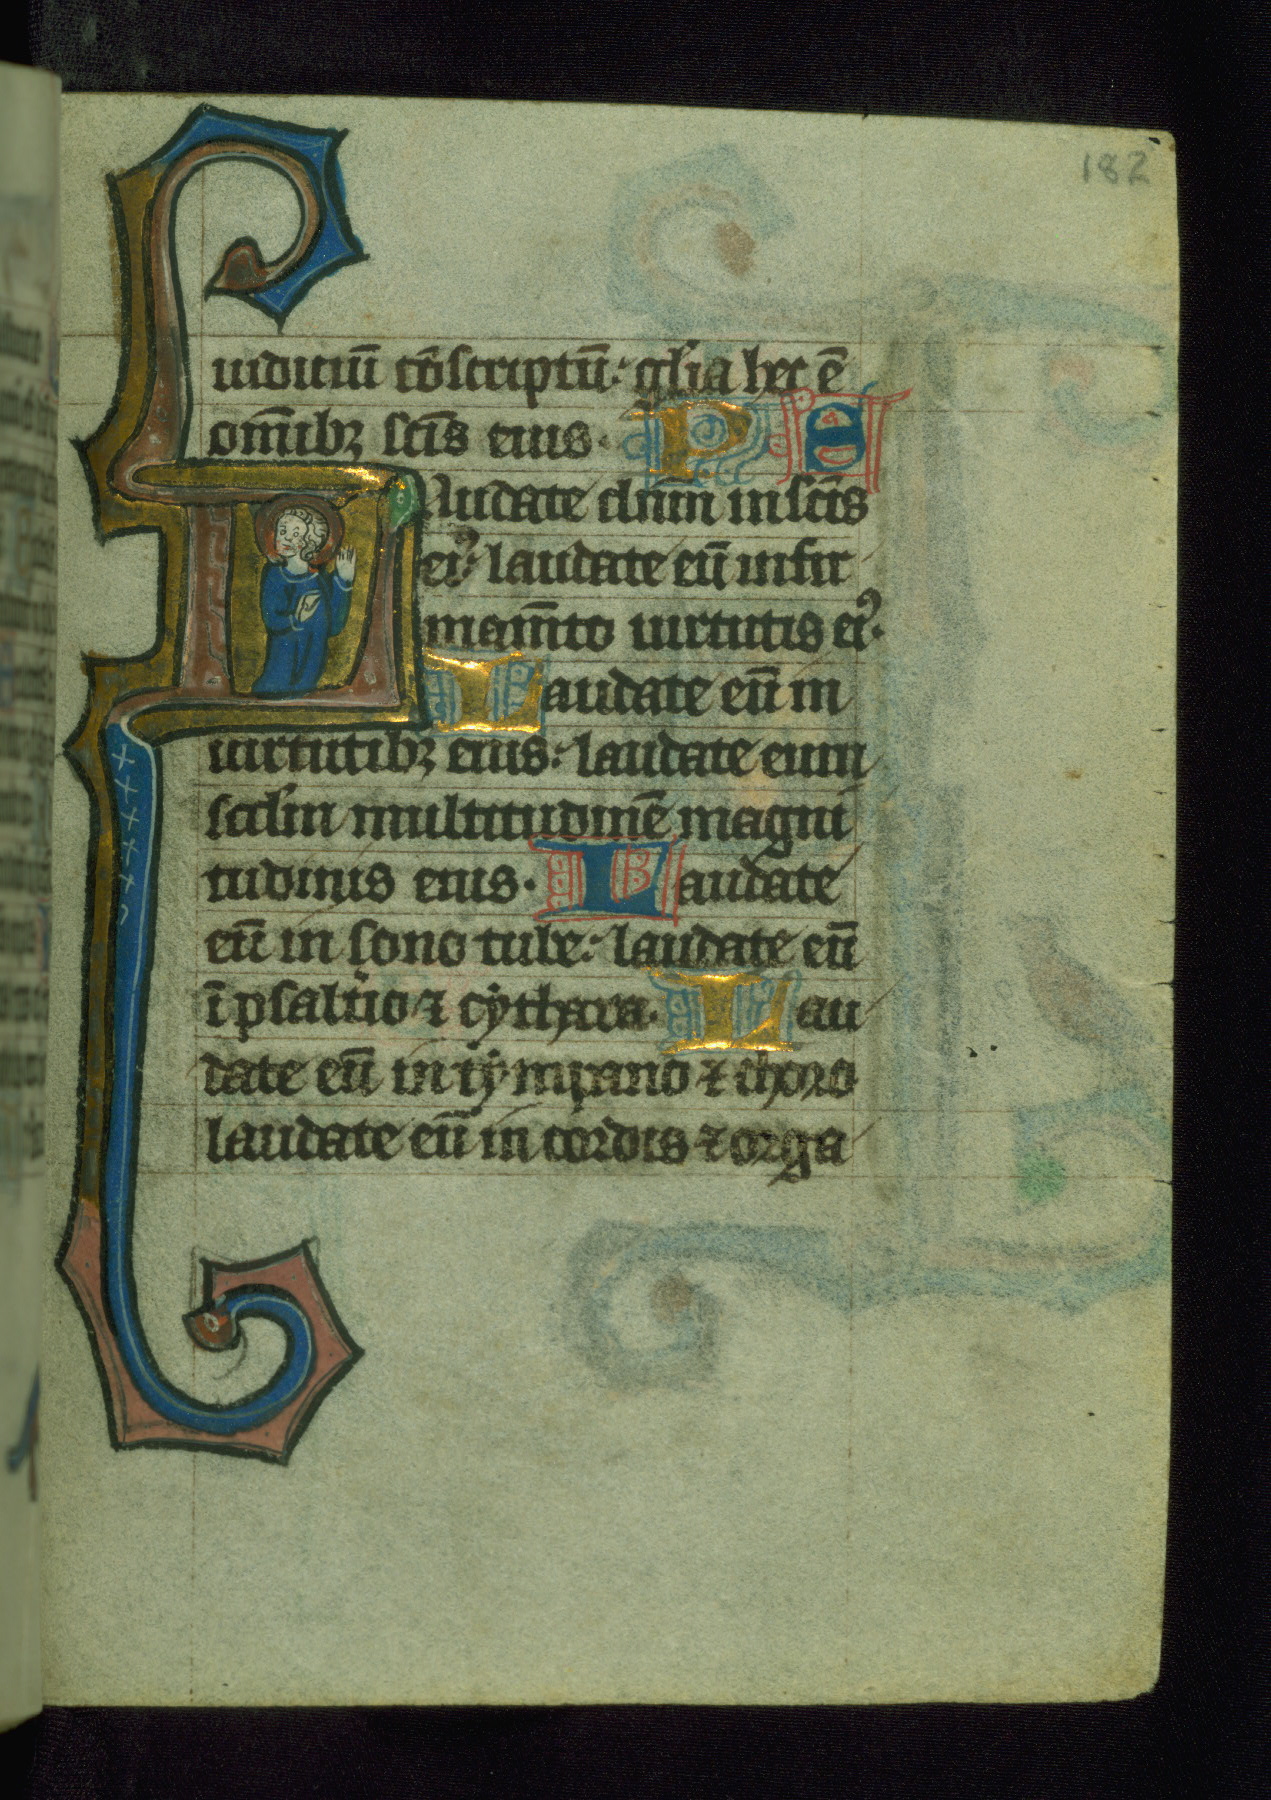 182
iudiciū cōscriptū: gl'ia hec ē
om̄ibꝫ sc̄is eius. P S
Laudate dn̄m in sc̄is
eiꝰ laudate eū in fir
mam̄to uirtutis eiꝰ.
Laudate eū in
uirtutibꝫ eius: laudate eum
scd'm multitudinē magni
tudinis eius. Laudate
eū in sono tube: laudate eū
ī psalt'io ⁊ cẏthara. Lau
date eū in tẏmpano ⁊ choro
laudate eū in cordis ⁊ orga